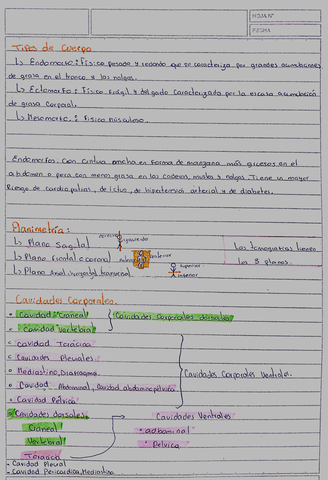 HOJA N°
FECHA
Tipos de Cuerpo
↳ Endomorfo: Físico pesado y redondo que se caracteriza por grandes acumulaciones
de grasa en el tronco y las nalgas.
↳ Ectomorfo: Físico frágil y delgado caracterizado por la escasa acumulación
de grasa corporal.
↳ Mesomorfo: Físico musculoso.
Endomorfos. Con cintura ancha en forma de manzana más gruesos en el
abdomen o pera con menos grasa en las caderas, muslos y nalgas. Tiene un mayor
Riesgo de cardiopatías, de ictus, de hipertensión arterial y de diabetes.
Planimetría:
↳ Plano Sagital derecho izquierdo
Las tomografías tienen
↳ Plano frontal o coronal anterior
los 3 planos.
↳ Plano horizontal transversal superior inferior
Cavidades Corporales.
• Cavidad Craneal
• Cavidad Vertebral
Cavidades Corporales dorsales
• Cavidad Torácica
• Cavidades Pleurales
• Mediastino, Diafragma
• Cavidad Abdominal, Cavidad abdominopélvica
• Cavidad Pélvica
Cavidades Corporales Ventrales.
Cavidades dorsales
Craneal
Vertebral
Torácica
Cavidades Ventrales
• abdominal
• Pélvica
- Cavidad Pleural
- Cavidad Pericardica, Mediastino